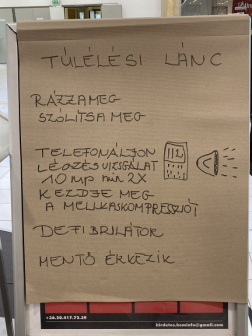 TÚLÉLÉSI LÁNC
RÁZZA MEG
SZÓLÍTSA MEG
TELEFONÁLJON
112
LÉGZÉSVIZSGÁLAT
10 mp min 2X
KEZDJE MEG
A MELLKASKOMPRESSZIÓT
DEFIBRILÁTOR
MENTŐ ÉRKEZIK
+36.30.617.72.39
hirdetes.kaminfo@gmail.com